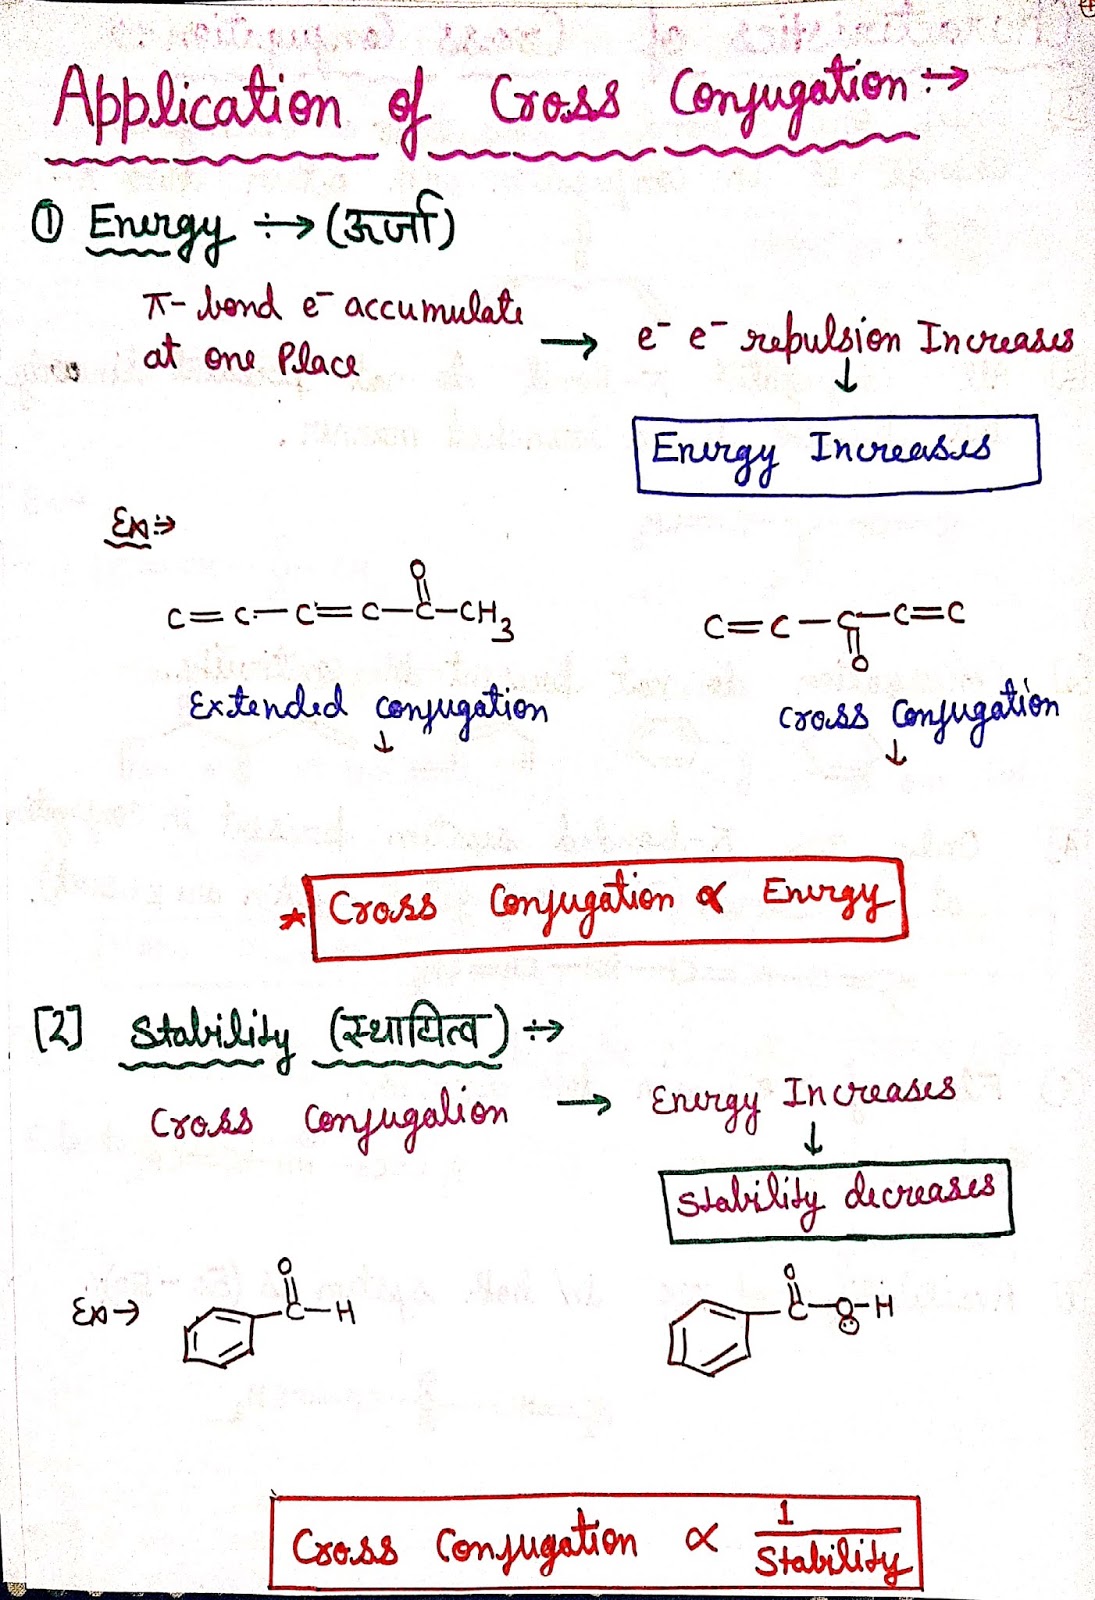 Application of Cross Conjugation ÷→
① Energy ÷→ (ऊर्जा)
π- bond e⁻ accumulate
at one Place → e⁻ e⁻ repulsion Increases
↓
Energy Increases
Ex ÷→
O
C=C-C=C-C-CH3
C=C-C-C=C
O
Extended conjugation
Cross Conjugation
↓ ↓
* Cross Conjugation ∝ Energy
[2] Stability (स्थायित्व) ÷→
Cross Conjugation → Energy Increases
↓
Stability decreases
O O
Ex → C-H C-O-H
Cross Conjugation ∝ 1
Stability